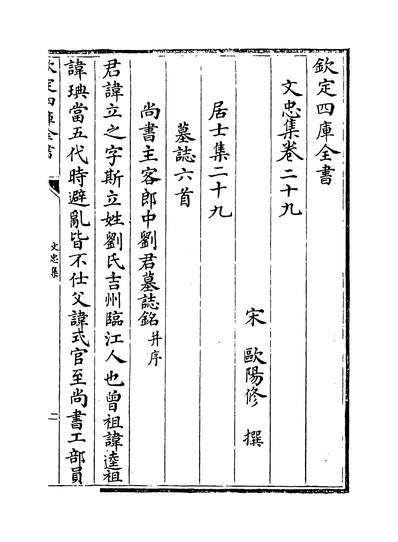 欽定四庫全書
文忠集卷二十九
宋 歐陽修 撰
居士集二十九
墓誌六首
尚書主客郎中劉君墓誌銘并序
君諱立之字斯立姓劉氏吉州臨江人也曾祖諱逵祖
諱琠當五代時避亂皆不仕父諱式官至尚書工部員
欽定四庫全書
文忠集
一